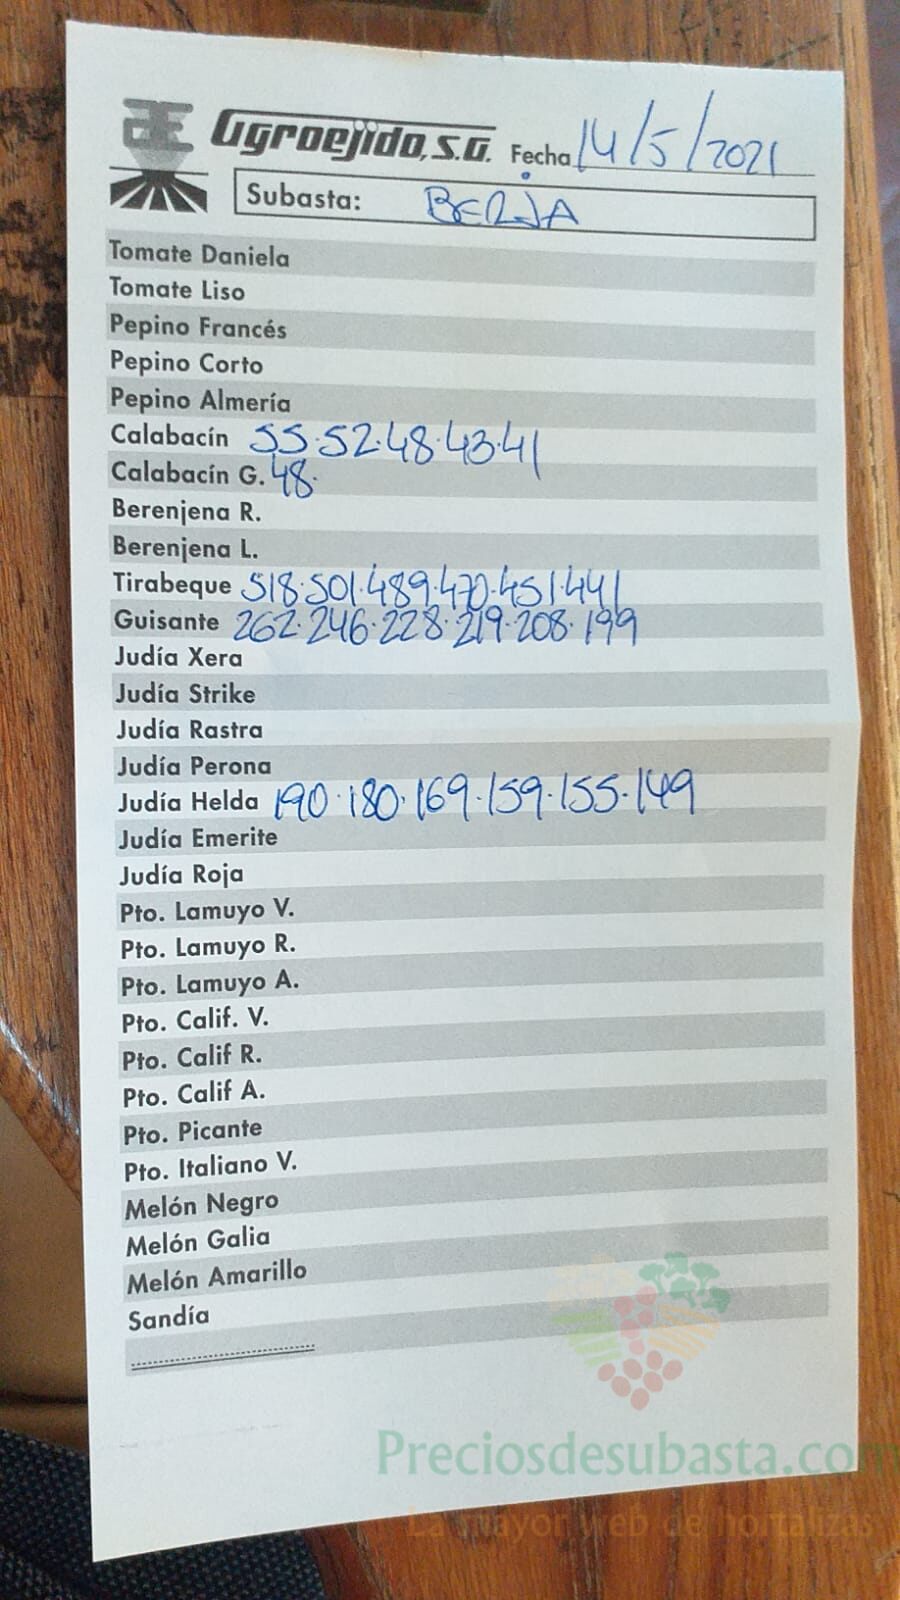 Agroejido, S.A. Fecha 14/5/2021
Subasta: BERJA
Tomate Daniela
Tomate Liso
Pepino Francés
Pepino Corto
Pepino Almería
Calabacín 55·52·48·43·41
Calabacín G. 48·
Berenjena R.
Berenjena L.
Tirabeque 518·501·489·470·451·441
Guisante 262·246·228·219·208·199
Judía Xera
Judía Strike
Judía Rastra
Judía Perona
Judía Helda 190·180·169·159·155·149
Judía Emerite
Judía Roja
Pto. Lamuyo V.
Pto. Lamuyo R.
Pto. Lamuyo A.
Pto. Calif. V.
Pto. Calif R.
Pto. Calif A.
Pto. Picante
Pto. Italiano V.
Melón Negro
Melón Galia
Melón Amarillo
Sandía
Preciosdesubasta.com
La mayor web de hortalizas